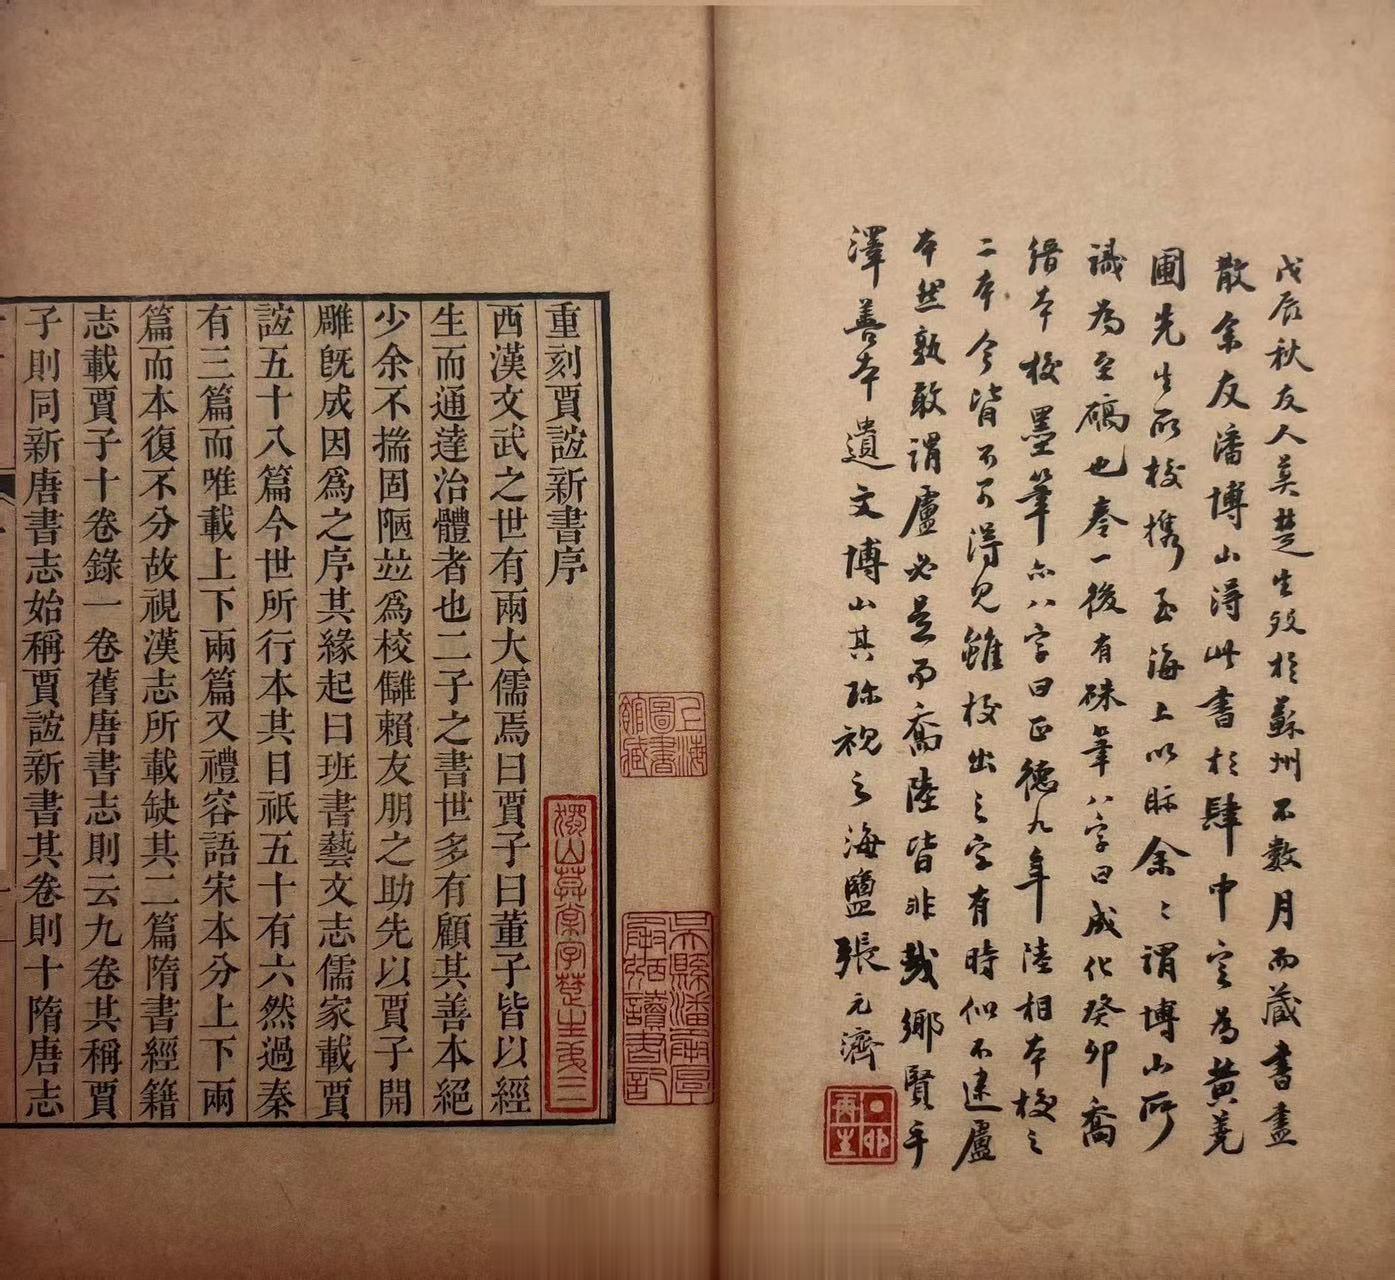 戊辰秋友人莫楚生歿於蘇州不數月而藏書盡
散余友潘博山得此書於肆中定為黃蕘
圃先生所校携至海上以眎余余謂博山所
識為至碻也卷一後有硃筆八字曰成化癸卯喬
縉本校墨筆亦八字曰正德九年陸相本校之
二本今皆不可得見雖校出之字有時似不逮盧
本然孰敢謂盧必是而喬陸皆非哉鄉賢手
澤善本遺文博山其珍視之海鹽張元濟
重刻賈誼新書序
西漢文武之世有兩大儒焉曰賈子曰董子皆以經
生而通達治體者也二子之書世多有顧其善本絕
少余不揣固陋竝為校讎賴友朋之助先以賈子開
雕既成因為之序其緣起曰班書藝文志儒家載賈
誼五十八篇今世所行本其目祇五十有六然過秦
有三篇而唯載上下兩篇又禮容語宋本分上下兩
篇而本復不分故視漢志所載缺其二篇隋書經籍
志載賈子十卷錄一卷舊唐書志則云九卷其稱賈
子則同新唐書志始稱賈誼新書其卷則十隋唐志
上海圖書館藏
獨山莫棠字楚生弟三
吳縣潘承厚承弼讀書記